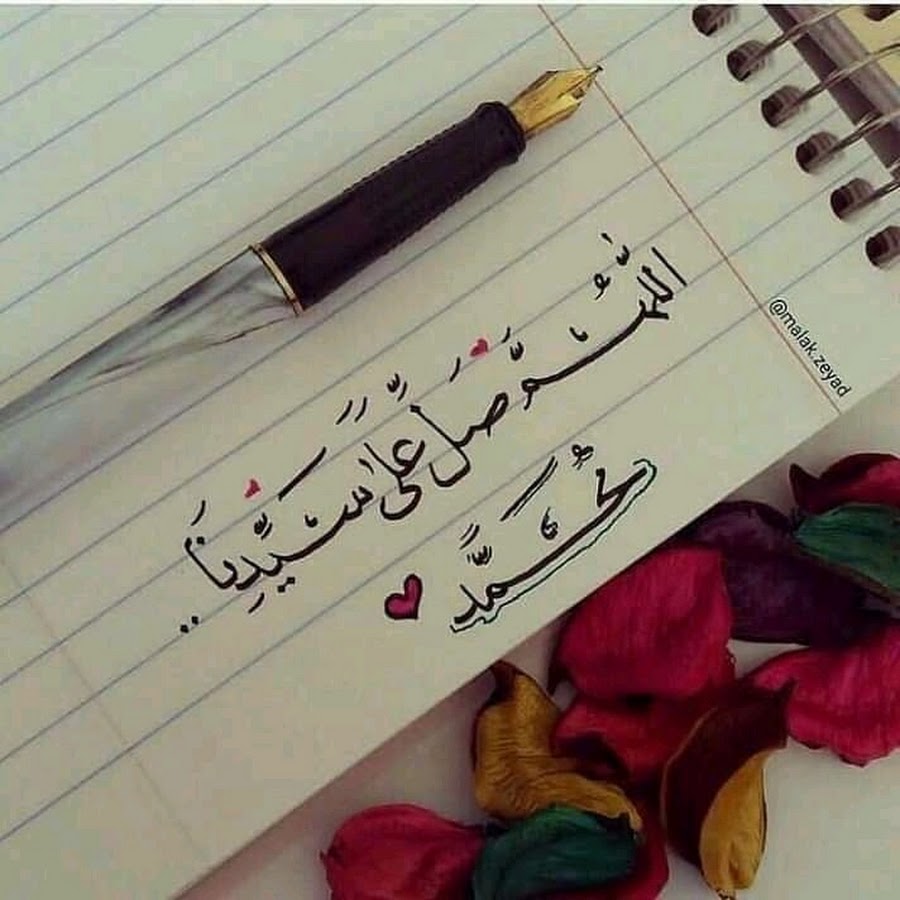 اللَّهُمَّ صَلِّ عَلَىٰ سَيِّدِنَا..
مُحَمَّد
@malak.zeyad